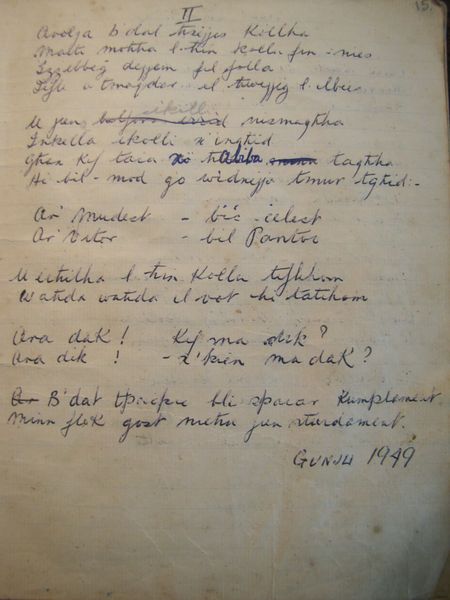 II
15.
Avolja b'dal hsijjes Kollha
Malti mohha l-hin kollu fin-nies
Izzebbeg dejjem fil folla
Tifli u tmaqdar il-libies
U jien ikolli nismaghha
Inkella ikolli n'ingtid
Ghax Kif taca xi habiba taghha
Hi bil-mod go widnejja tmur tgtid:-
Ar' Mudest - bic-celest
Ar' Vitor - bil Pantor
U ectilha l-hin Kollu tifhhom
Wahda wahda il-vot hi tatihom
Ara dak! Kif ma dik?
Ara dik! - x'kien ma dak?
B'dat tpacpac bli spacar Kumplement.
Minn flok gost niehu jien sturdament.
GUNJU 1949